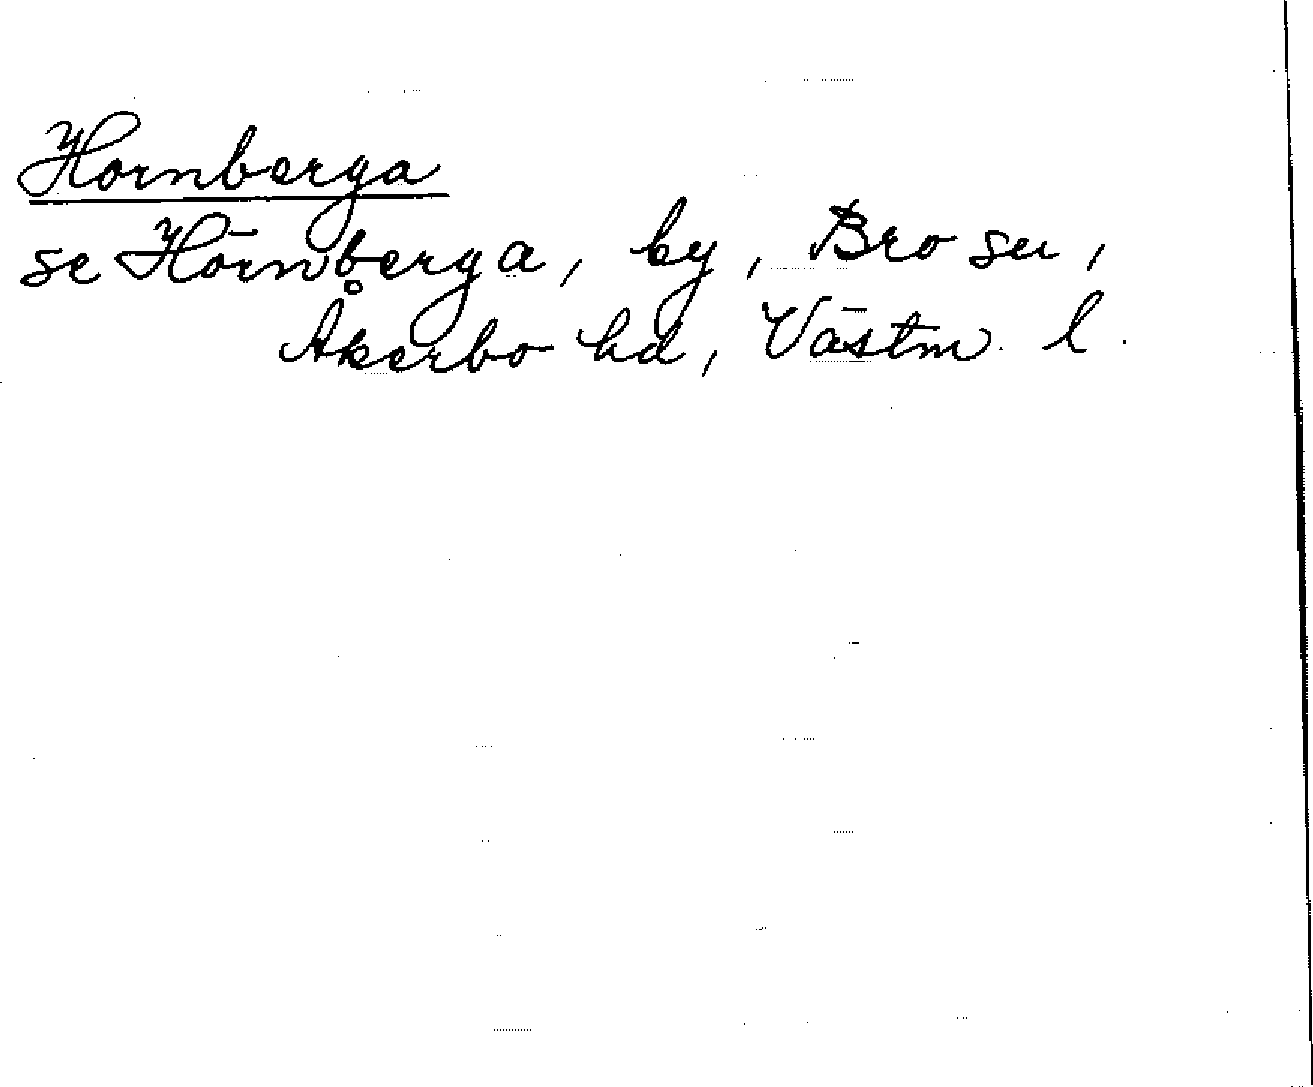 Hornberga
se Hörnberga, by, Bro sn,
Åkerbo hd, Västm. l.